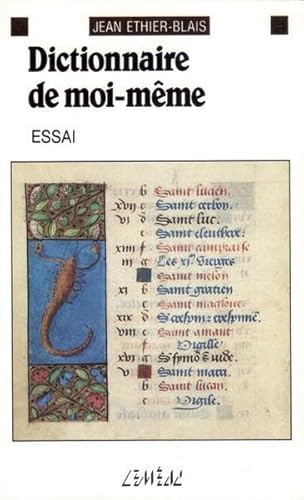 JEAN ETHIER-BLAIS
Dictionnaire
de moi-même
ESSAI
b Saint lucien.
xvii c Saint cerbon.
vi d Saint luc.
e Saint eleuthere.
xiiii f Saint
iii g Les xi. vierges
Saint melon
xi b Saint gratien
c Saint magloire.
xix d S crespin: crespinie.
viii e Saint amant
f Vigille
xvi g S symo & iude.
v Saint marcel
b Saint lucan.
c Vigile.
LEMÉAC